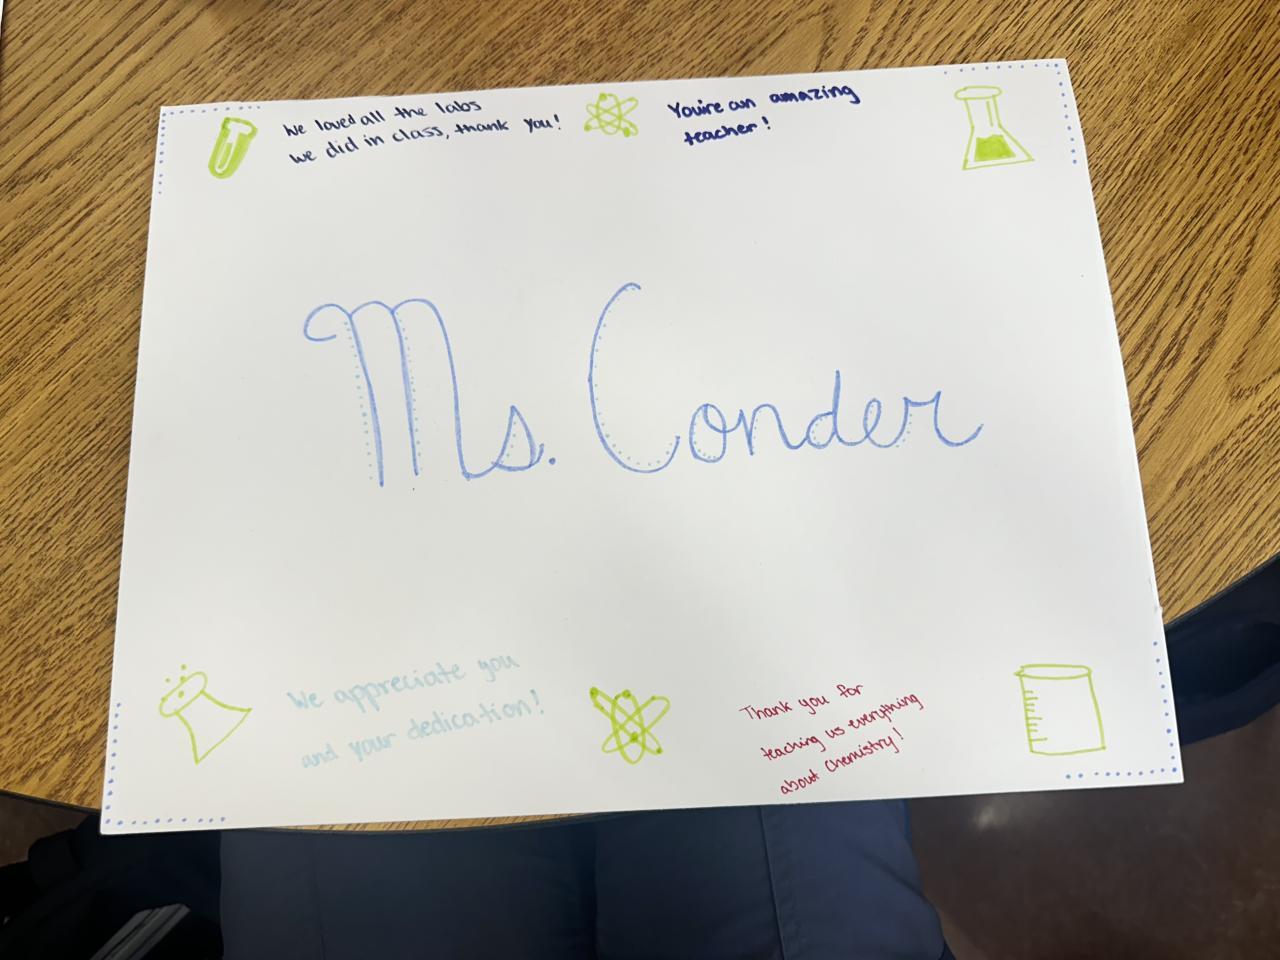 We loved all the labs
we did in class, thank you!
You're an amazing
teacher!
Ms. Conder
We appreciate you
and your dedication!
Thank you for
teaching us everything
about Chemistry!